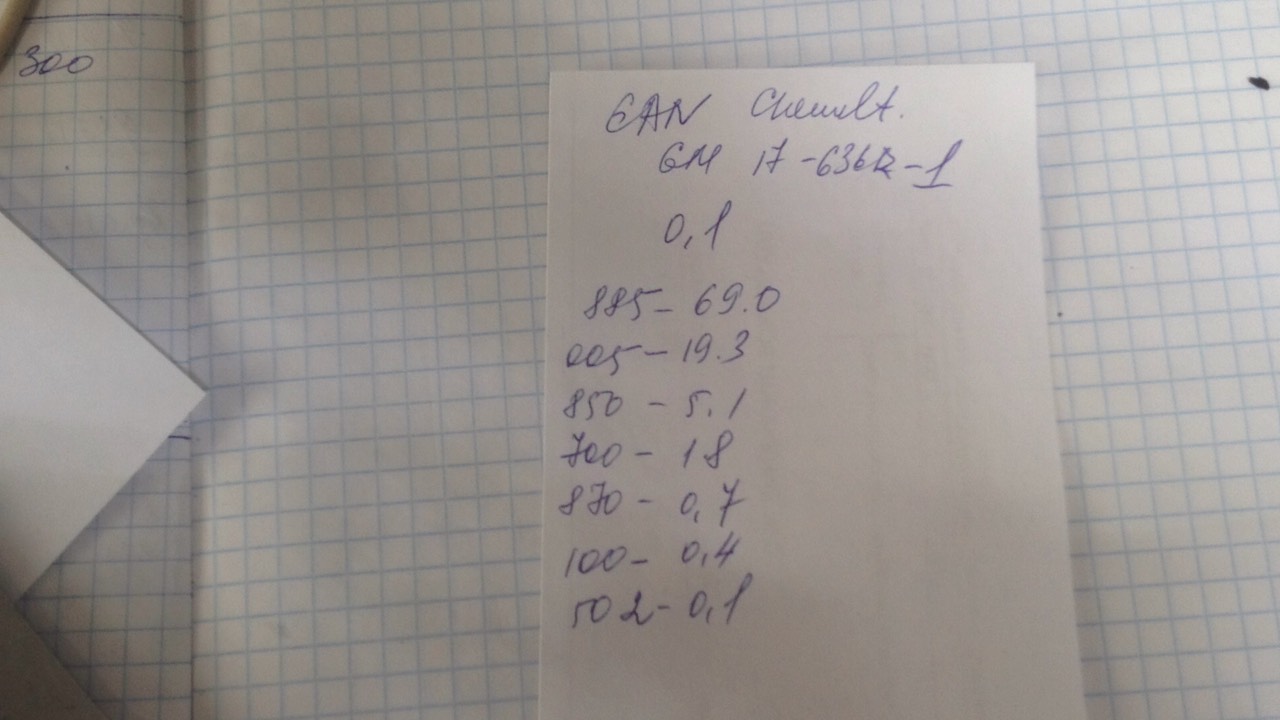 300
GAN Chevrolet.
GM 17-636R-1
0,1
885 - 69.0
005 - 19.3
850 - 5.1
700 - 18
870 - 0,7
100 - 0,4
502 - 0,1